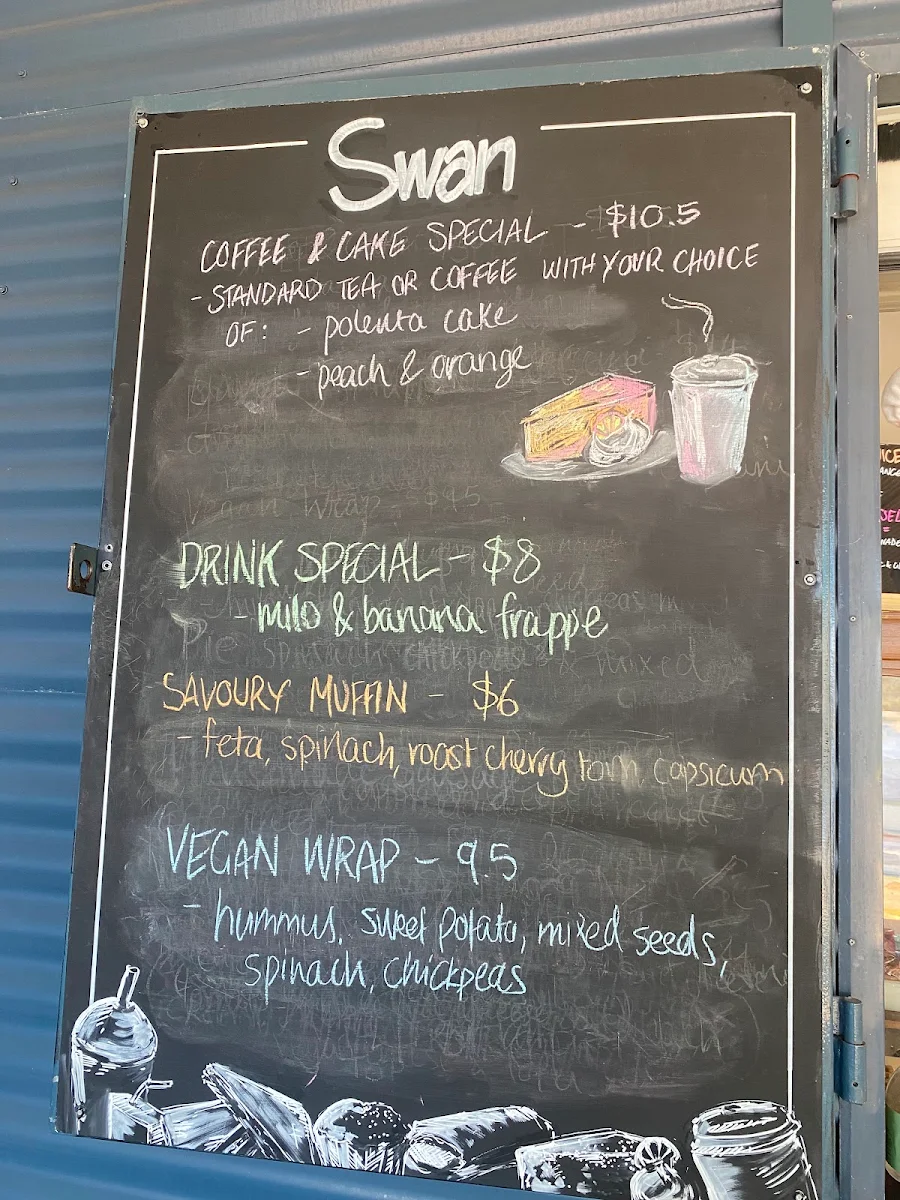 Swan
COFFEE & CAKE SPECIAL - $10.5
- STANDARD TEA OR COFFEE WITH YOUR CHOICE
OF: - polenta cake
- peach & orange
Vegan Wrap $9.5
DRINK SPECIAL - $8
- milo & banana frappe
Pie spinach, chickpeas & mixed
SAVOURY MUFFIN - $6
- feta, spinach, roast cherry tom, capsicum
VEGAN WRAP - 9.5
- hummus, sweet potato, mixed seeds,
spinach, chickpeas